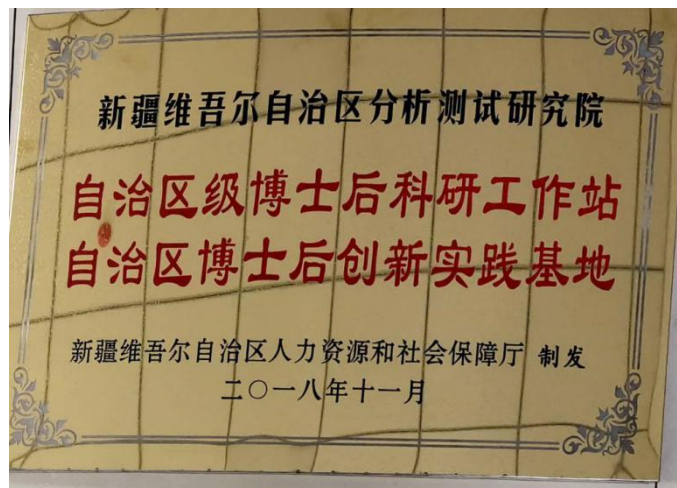 新疆维吾尔自治区分析测试研究院
自治区级博士后科研工作站
自治区博士后创新实践基地
新疆维吾尔自治区人力资源和社会保障厅 制发
二〇一八年十一月